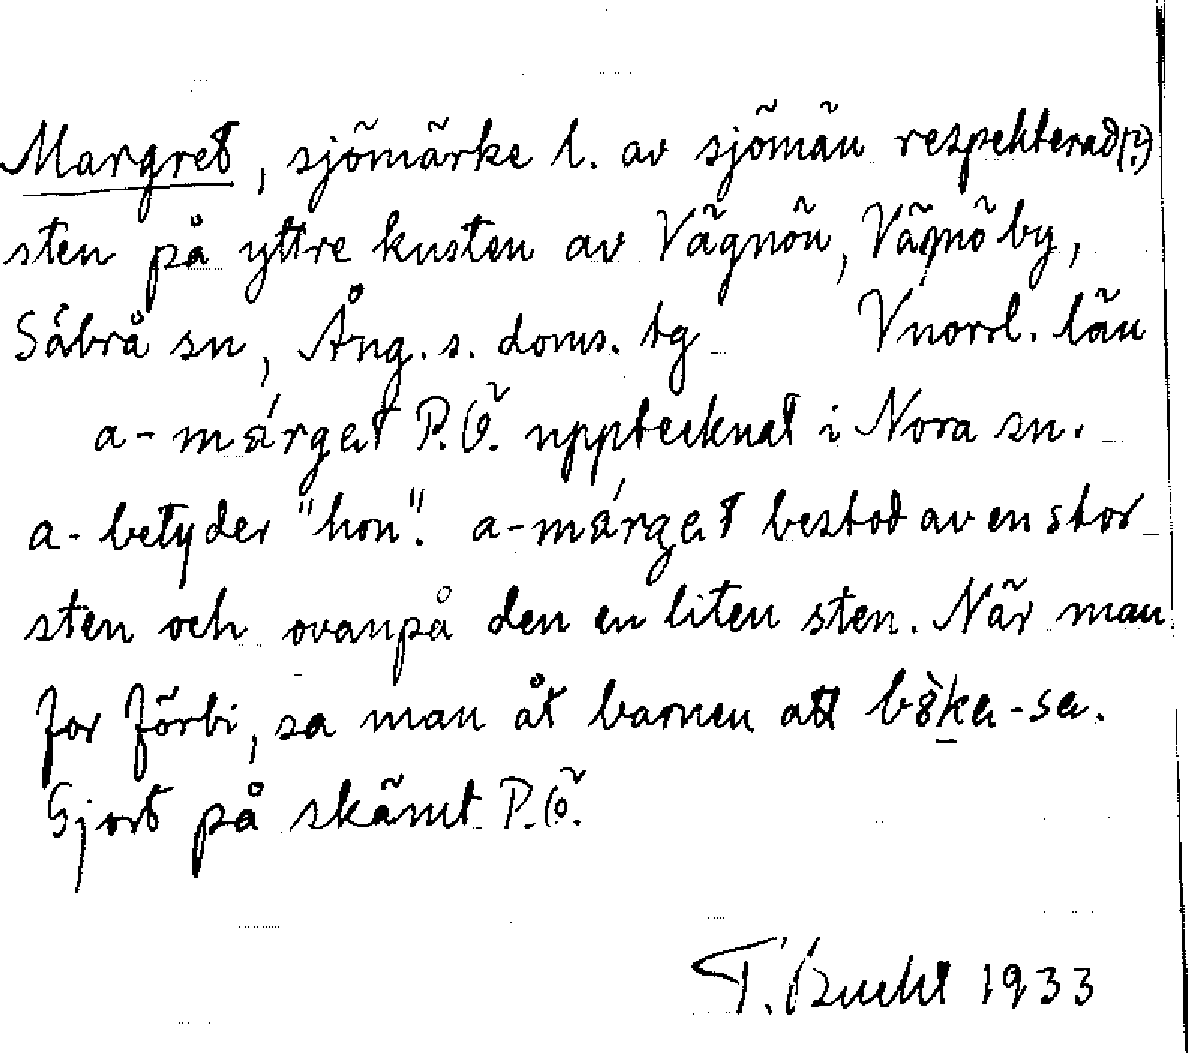 Margret, sjömärke l. av sjömän respekterad(?)
sten på yttre kusten av Vägnön, Vägnö by,
Säbrå sn, Ång. s. doms. tg Vnorrl. län
a-márgat P.Ö. upptecknat i Nora sn.
a- betyder "hon". a-márgat bestod av en stor
sten och ovanpå den en liten sten. När man
for förbi, sa man åt barnen att bò̀ka-sa.
Gjort på skämt P.Ö.
T. Bucht 1933